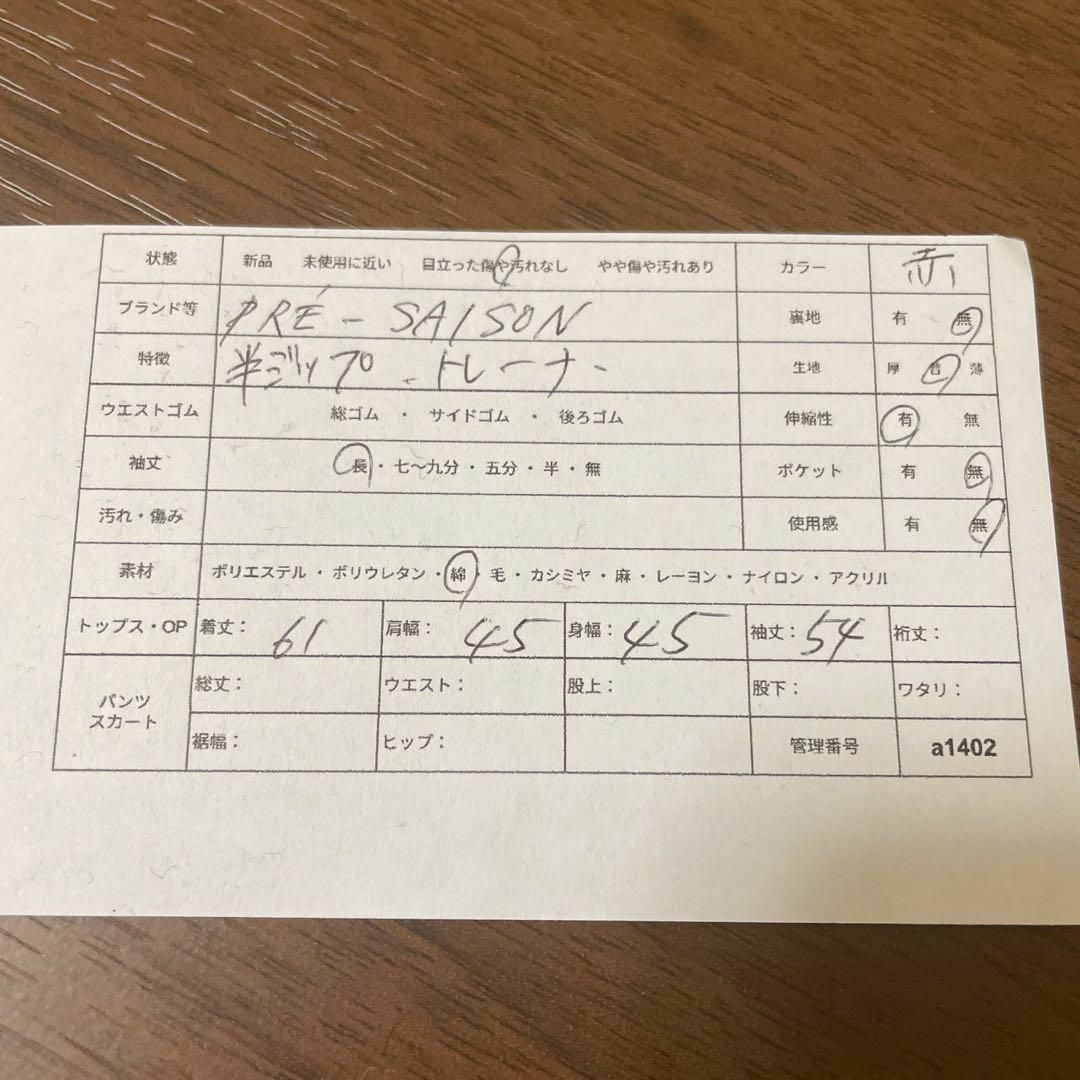 状態 新品 未使用に近い 目立った傷や汚れなし やや傷や汚れあり カラー 赤
ブランド等 PRÉ-SAISON 裏地 有 無
特徴 半ジップ.トレーナー 生地 厚 普 薄
ウエストゴム 総ゴム ・ サイドゴム ・ 後ろゴム 伸縮性 有 無
袖丈 長・七〜九分・五分・半・無 ポケット 有 無
汚れ・傷み 使用感 有 無
素材 ポリエステル・ポリウレタン・綿・毛・カシミヤ・麻・レーヨン・ナイロン・アクリル
トップス・OP 着丈: 61 肩幅: 45 身幅: 45 袖丈: 54 裄丈:
パンツ
スカート
総丈: ウエスト: 股上: 股下: ワタリ:
裾幅: ヒップ: 管理番号 a1402